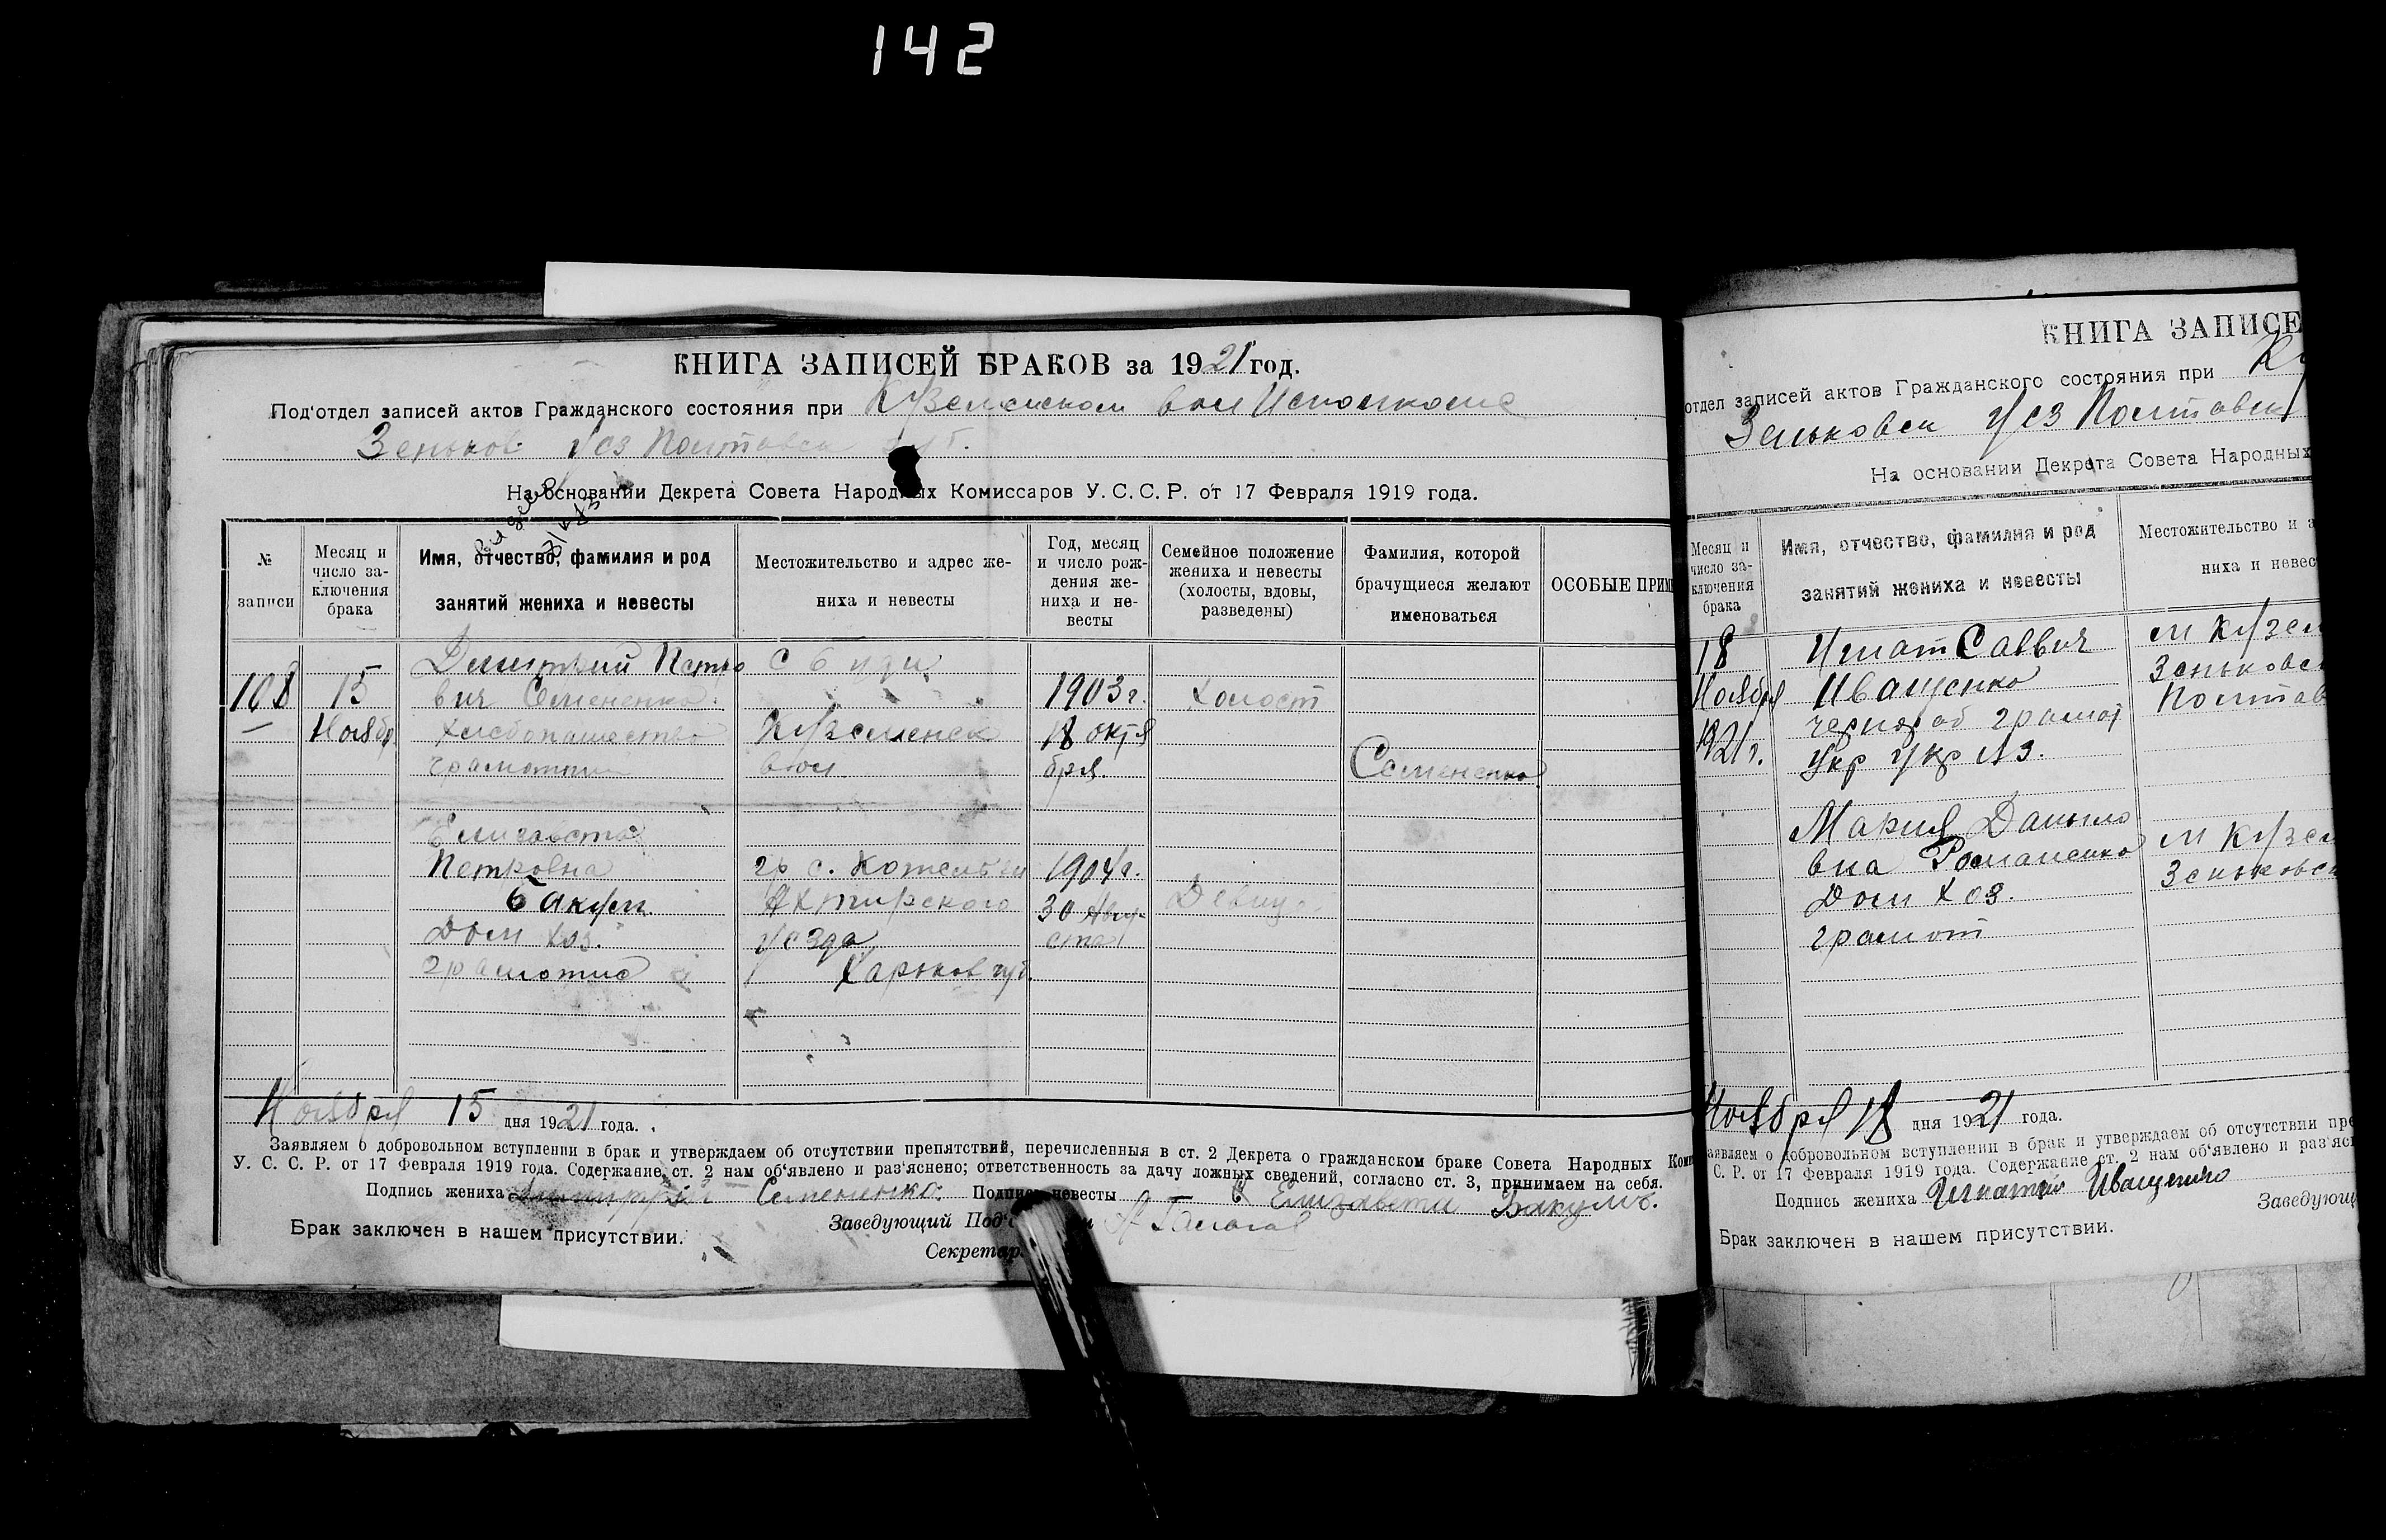 142
КНИГА ЗАПИСЕЙ БРАКОВ за 1921 год.
Под'отдел записей актов Гражданского состояния при Куземенском вол Исполкоме
Зеньков. уез Полтавск губ.
На основании Декрета Совета Народных Комиссаров У. С. С. Р. от 17 Февраля 1919 года.
№ записи
Месяц и число заключения брака
Имя, отчество, фамилия и род занятий жениха и невесты
Местожительство и адрес жениха и невесты
Год, месяц и число рождения жениха и невесты
Семейное положение жениха и невесты (холосты, вдовы, разведены)
Фамилия, которой брачущиеся желают именоваться
ОСОБЫЕ ПРИМ
108
15
Ноябр.
Димитрий Петро
вич Семененко.
Хлебопашество
грамотный
с Буди
Куземенск
вол.
1903 г.
18 октя
бря.
холост
Семененко
Елизавета
Петровна
Бакум
Дом хоз.
грамотна
гр с. Котельвы
Ахтирского
уезда
Харьков губ.
1904 г.
30 Авгу-
ста
Девица
Ноября 15 дня 1921 года.
Заявляем о добровольном вступлении в брак и утверждаем об отсутствии препятствий, перечисленных в ст. 2 Декрета о гражданском браке Совета Народных Ком
У. С. С. Р. от 17 Февраля 1919 года. Содержание ст. 2 нам об'явлено и раз'яснено; ответственность за дачу ложных сведений, согласно ст. 3, принимаем на себя.
Подпись жениха Семененко. Подпись невесты Елизавета Бакумъ.
Заведующий Под'
Брак заключен в нашем присутствии.
Секретар
КНИГА ЗАПИСЕ
отдел записей актов Гражданского состояния при Ку
Зеньковск уез Полтавск
На основании Декрета Совета Народных
Месяц и число заключения брака
Имя, отчество, фамилия и род занятий жениха и невесты
Местожительство и а
ниха и невес
18
Ноября
1921 г.
Игнат Саввич
Иващенко
чернораб грамот
Укр УКР ЛЗ.
м Кузем
Зеньковск
Полтав
Мария Данило
вна Романенко
Дом хоз.
грамот
м Кузем
Зеньковск
Ноября 18 дня 1921 года.
аявляем о добровольном вступлении в брак и утверждаем об отсутствии пре
С. Р. от 17 Февраля 1919 года. Содержание ст. 2 нам об'явлено и раз'яс
Подпись жениха Игнатий Иващенко
Заведующ
Брак заключен в нашем присутствии.